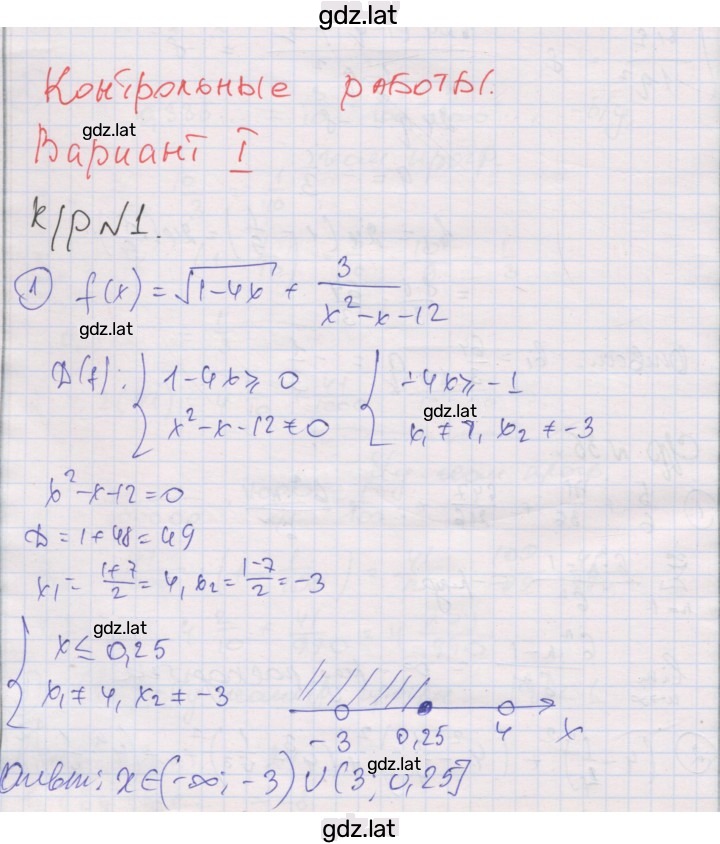 gdz.lat
Контрольные работы.
gdz.lat
Вариант I
к/р №1.
① f(x) = √(1-4x) + 3/(x²-x-12)
gdz.lat
D(f): { 1-4x ≥ 0 { -4x ≥ -1
gdz.lat
x²-x-12 ≠ 0 x₁ ≠ 4, x₂ ≠ -3
x²-x-12=0
D = 1+48=49
x₁ = (1+7)/2 = 4, x₂ = (1-7)/2 = -3
gdz.lat
{ x ≤ 0,25
x₁ ≠ 4, x₂ ≠ -3
-3 0,25 4 x
gdz.lat
Ответ: x∈(-∞; -3) ∪ (3; 0,25]
gdz.lat